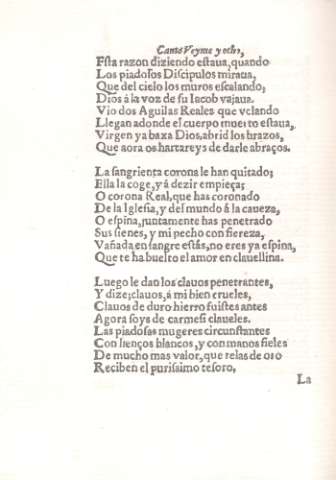 Canto Veynte y ocho,
Esta razon diziendo estaua, quando
Los piadosos Discipulos miraua,
Que del cielo los muros escalando;
Dios á la voz de su Iacob vajaua.
Vio dos Aguilas Reales que velando
Llegan adonde el cuerpo muerto estaua,
Virgen ya baxa Dios, abrid los brazos,
Que aora os hartareys de darle abraços.
La sangrienta corona le han quitado;
Ella la coge, y á dezir empieça;
O corona Real, que has coronado
De la Iglesia, y del mundo á la caueza,
O espina, juntamente has penetrado
Sus sienes, y mi pecho con fiereza,
Vañada en sangre estás, no eres ya espina,
Que te ha buelto el amor en clauellina.
Luego le dan los clauos penetrantes,
Y dize; clauos, á mi bien crueles,
Clauos de duro hierro fuistes antes
Agora soys de carmesi claueles.
Las piadosas mugeres circunstantes
Con lienços blancos, y con manos fieles
De mucho mas valor, que telas de oro
Reciben el purisimo tesoro,
La